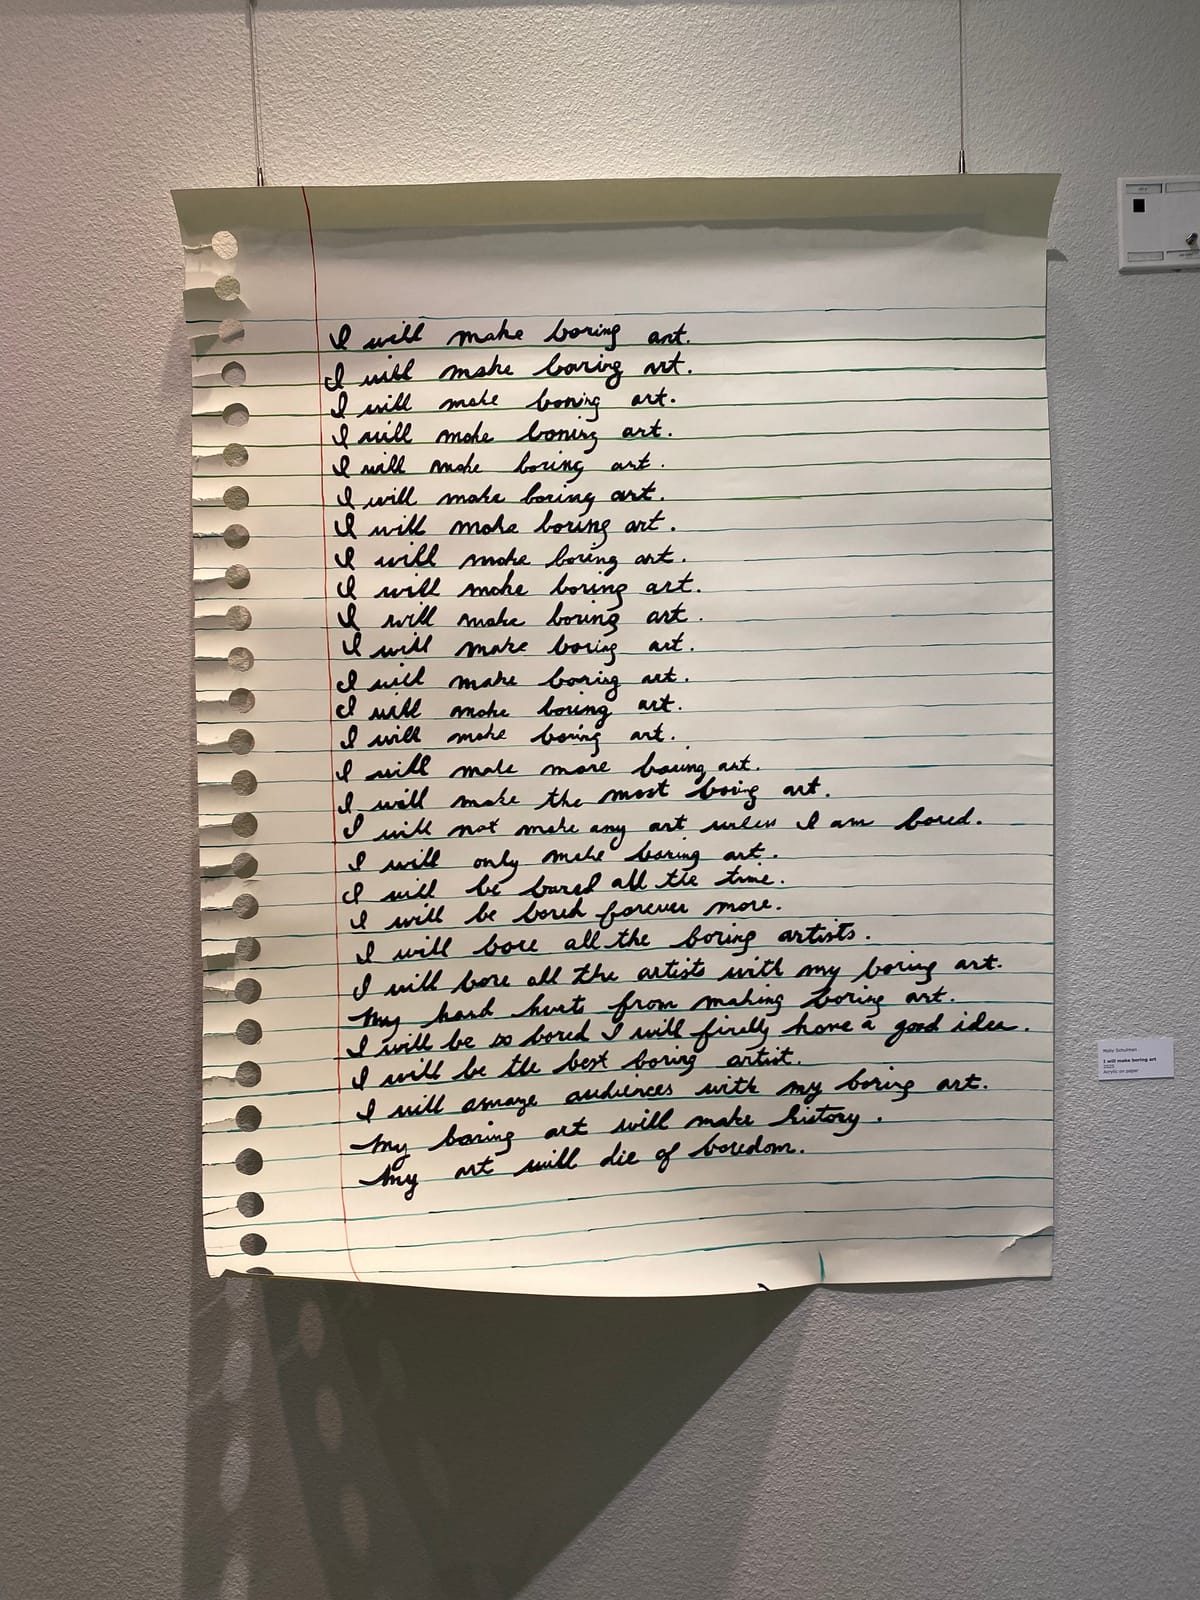 I will make boring art.
I will make boring art.
I will make boring art.
I will make boring art.
I will make boring art.
I will make boring art.
I will make boring art.
I will make boring art.
I will make boring art.
I will make boring art.
I will make boring art.
I will make boring art.
I will make boring art.
I will make boring art.
I will make more boring art.
I will make the most boring art.
I will not make any art unless I am bored.
I will only make boring art.
I will be bored all the time.
I will be bored forever more.
I will bore all the boring artists.
I will bore all the artists with my boring art.
My hand hurts from making boring art.
I will be so bored I will finally have a good idea.
I will be the best boring artist.
I will amaze audiences with my boring art.
My boring art will make history.
My art will die of boredom.
Molly Schulman
I will make boring art
2025
Acrylic on paper